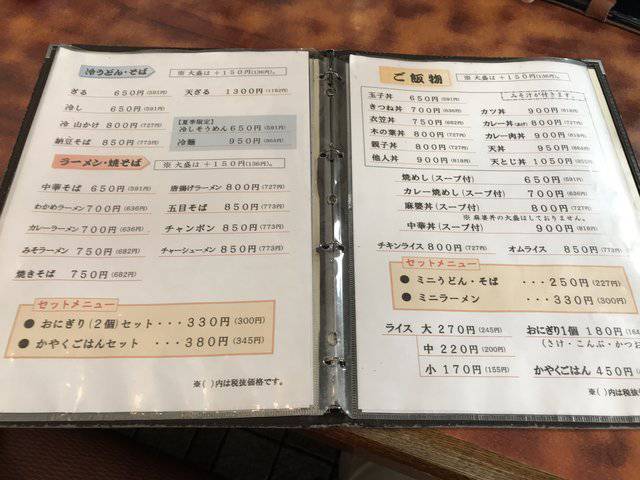 冷うどん・そば
※ 大盛は +150円(136円)。
ざる 650円(591円)
天ざる 1300円(1182円)
冷し 650円(591円)
冷 山かけ 800円(727円)
納豆そば 850円(773円)
【夏季限定】
冷しそうめん 650円(591円)
冷麺 950円(864円)
ラーメン・焼そば
※ 大盛は +150円(136円)。
中華そば 650円(591円)
唐揚げラーメン 800円(727円)
わかめラーメン 700円(636円)
五目そば 850円(773円)
カレーラーメン 700円(636円)
チャンポン 850円(773円)
みそラーメン 750円(682円)
チャーシューメン 850円(773円)
焼きそば 750円(682円)
セットメニュー
● おにぎり(2個)セット・・・330円(300円)
● かやくごはんセット・・・380円(345円)
※( )内は税抜価格です。
ご飯物
※ 大盛は +150円(136円)。
みそ汁が付きます。
玉子丼 650円(591円)
きつね丼 700円(636円)
衣笠丼 750円(682円)
木の葉丼 800円(727円)
親子丼 800円(727円)
他人丼 900円(818円)
カツ丼 900円(818円)
カレー丼 800円(727円)
カレー肉丼 900円(818円)
天丼 950円(864円)
天とじ丼 1050円
焼めし(スープ付) 650円(591円)
カレー焼めし(スープ付) 700円(636円)
麻婆丼(スープ付) 800円(727円)
※ 麻婆丼の大盛はしておりません。
中華丼(スープ付) 900円(818円)
チキンライス 800円(727円)
オムライス 850円(773円)
セットメニュー
● ミニうどん・そば ・・・250円(227円)
● ミニラーメン ・・・330円(300円)
ライス 大 270円(245円)
中 220円(200円)
小 170円(155円)
おにぎり1個 180円
(さけ・こんぶ・かつお
かやくごはん 450円
※( )内は税抜価格